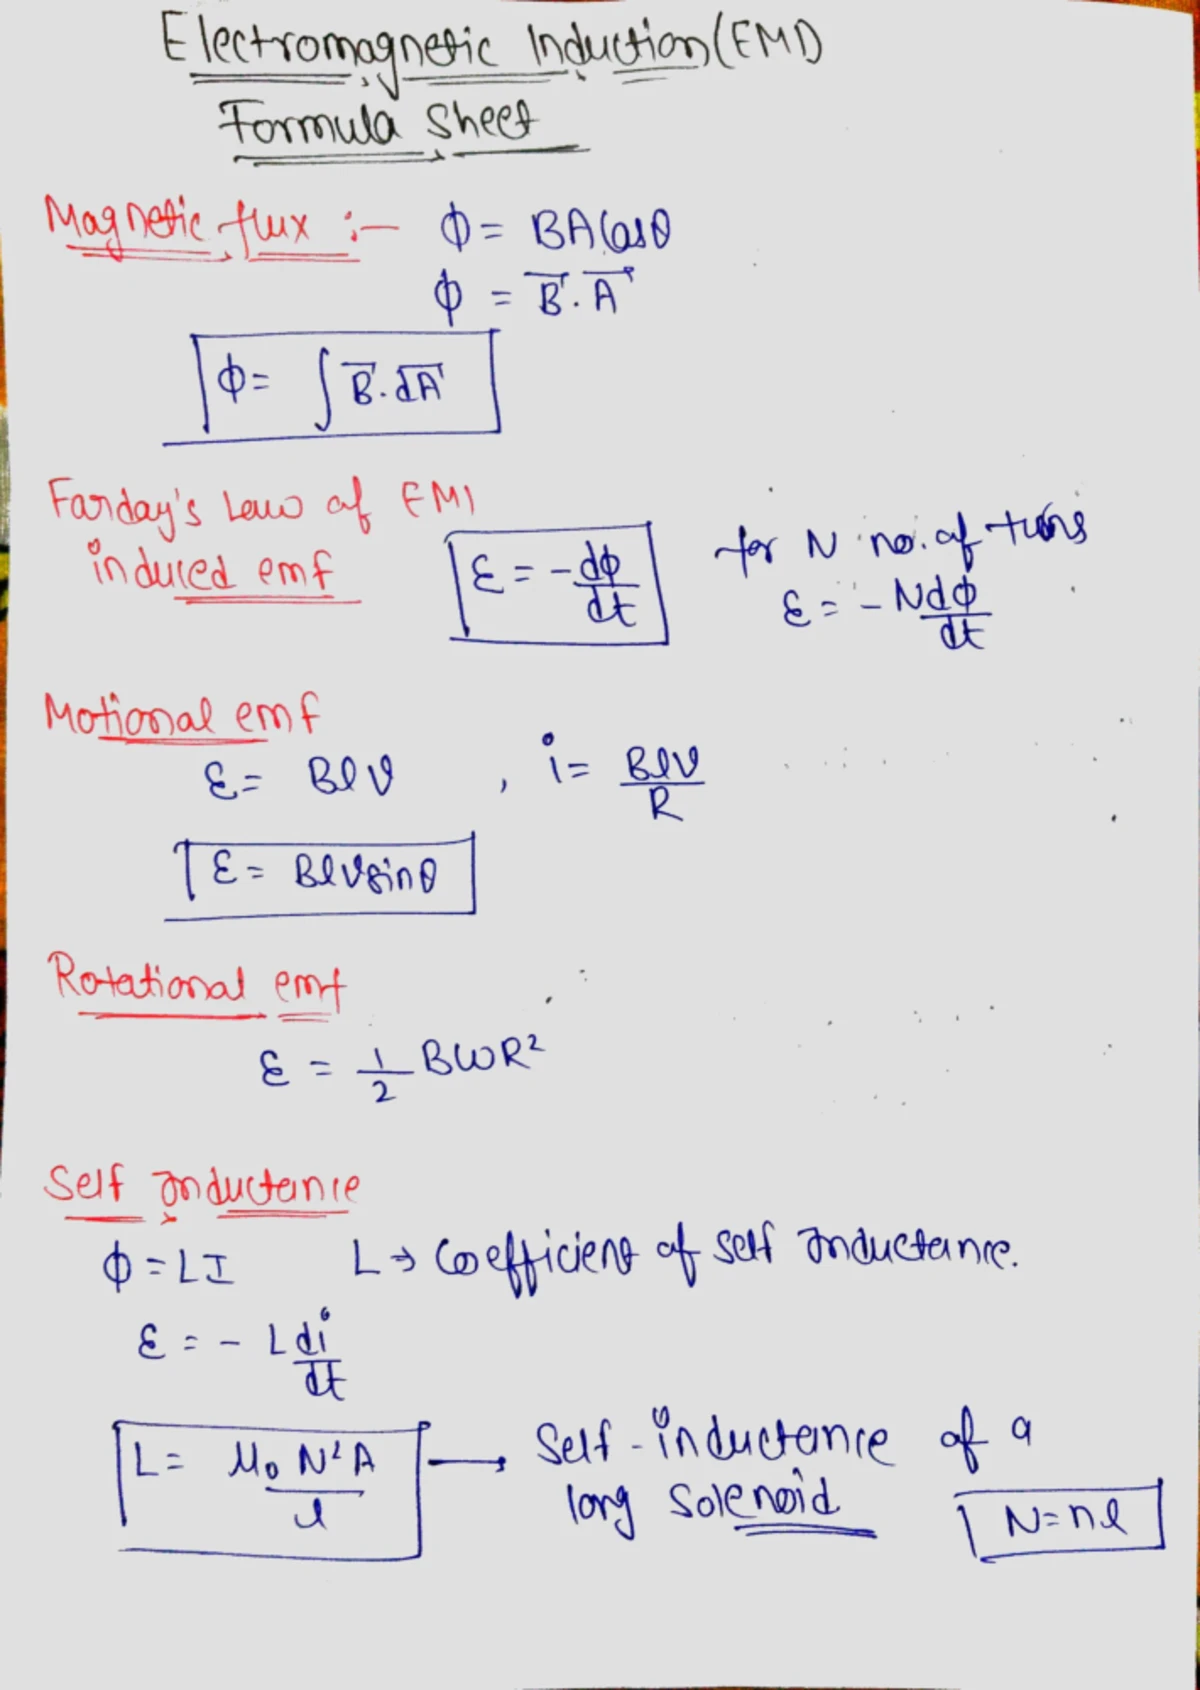 Electromagnetic Induction (EMI)
Formula Sheet
Magnetic flux :- ϕ = BA Cosθ
ϕ = B⃗. A⃗
ϕ = ∫ B⃗. dA⃗
Farday's Law of EMI
induced emf ε = -dϕ/dt
for N no. of turns
ε = - Ndϕ/dt
Motional emf
ε = Blv , i = Blv/R
ε = Blv sinθ
Rotational emf
ε = 1/2 BωR²
Self Inductance
ϕ = LI L → Coefficient of self Inductance.
ε = - L di/dt
L = μ₀ N² A / l → Self-inductance of a
long Solenoid N = nl